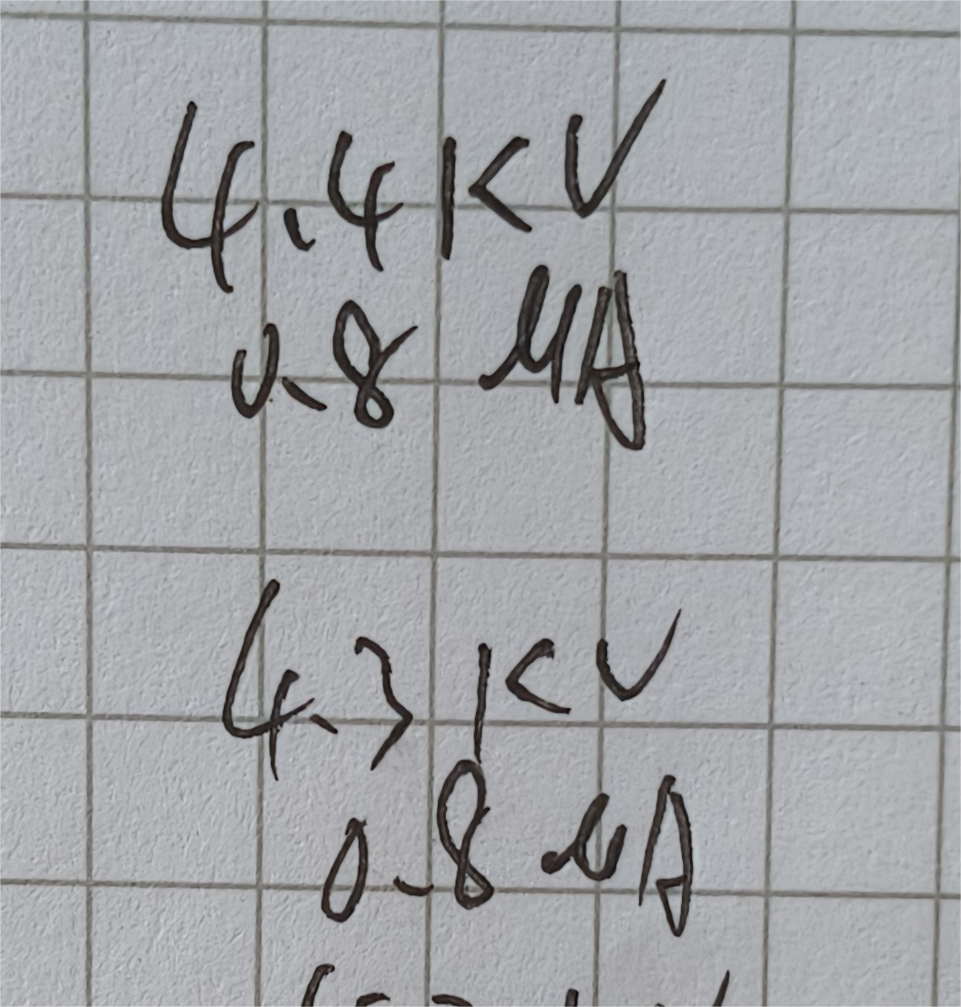 4.4 KV
0.8 μA
4.3 KV
0.8 μA